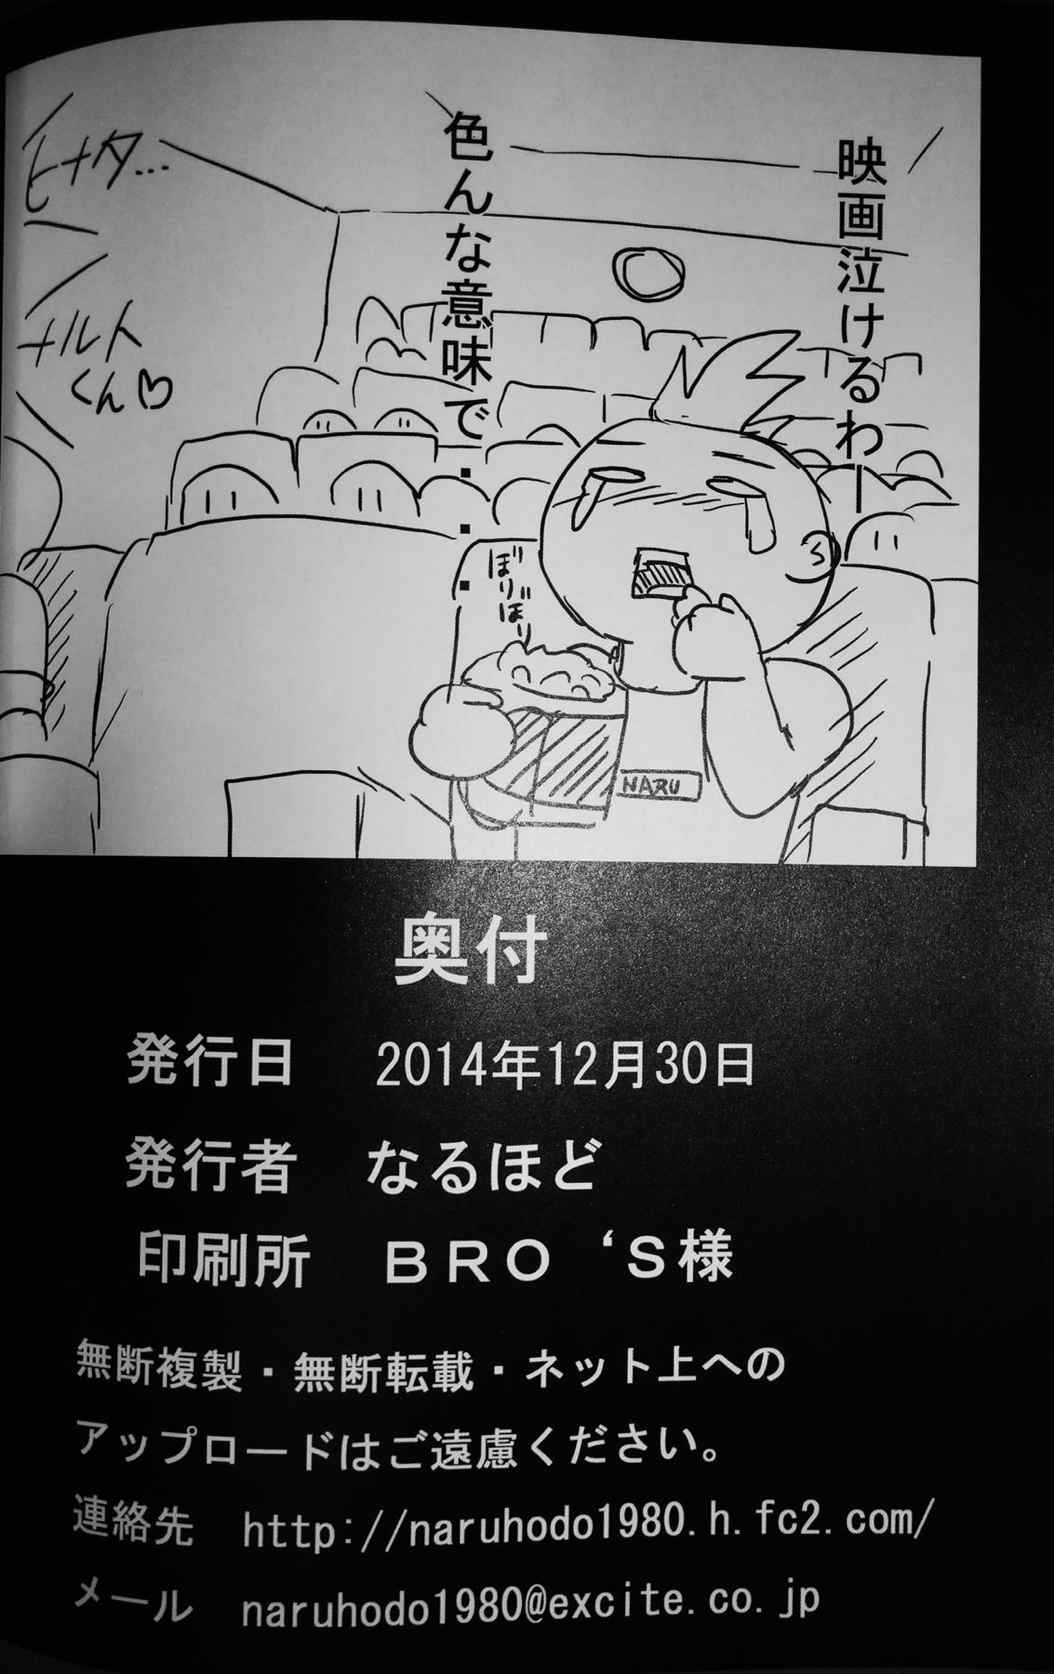 映画泣けるわー
色んな意味で・・・
ヒナタ…
ナルト
くん♡
ぼりぼり
NARU
奥付
発行日 2014年12月30日
発行者 なるほど
印刷所 ＢＲＯ‘Ｓ様
無断複製・無断転載・ネット上への
アップロードはご遠慮ください。
連絡先 http://naruhodo1980.h.fc2.com/
メール naruhodo1980@excite.co.jp